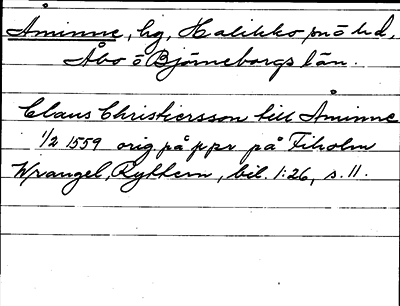 Åminne, hg, Halikko sn o hd,
Åbo o Björneborgs län.
Claus Christiersson till Åminne
1/2 1559 orig på ppr på Tiholm
Wrangel, Ryttern, bil. 1:26, s. 11.